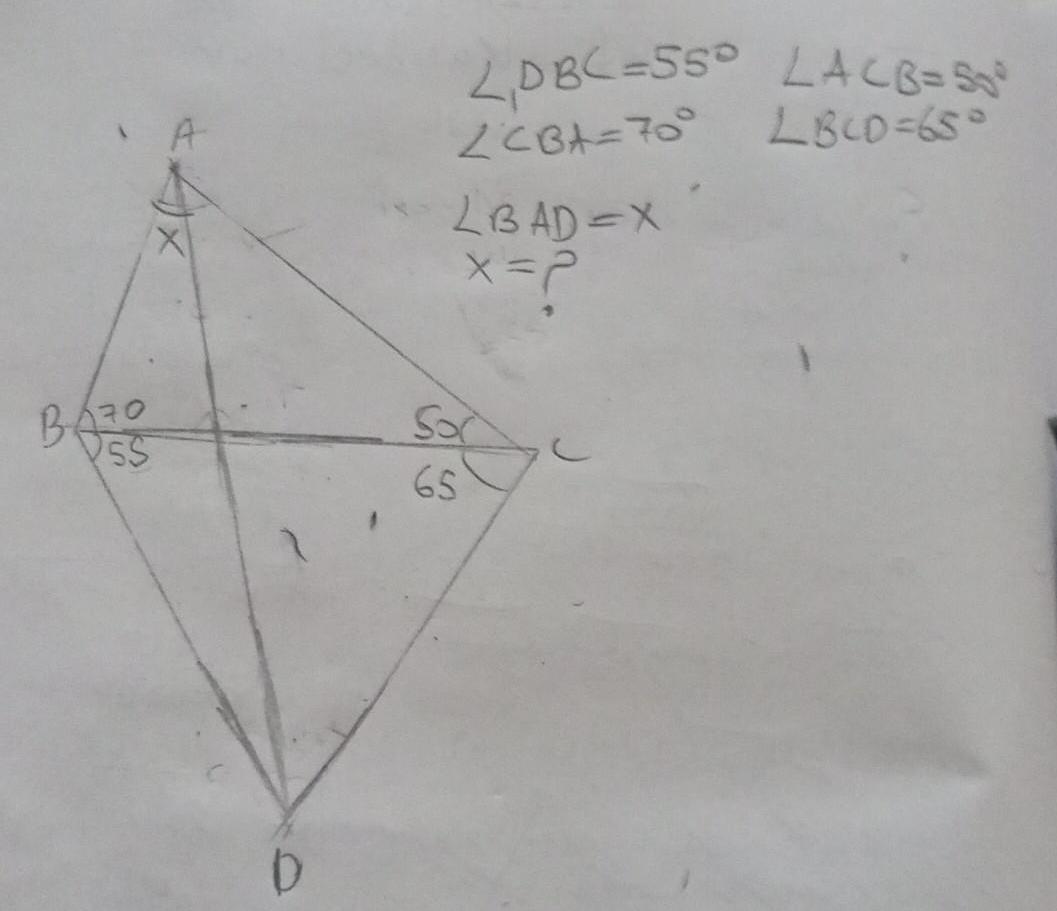 ∠DBC=55° ∠ACB=50°
∠CBA=70° ∠BCD=65°
∠BAD=x
x=?
A
x
B 70 50 C
55 65
D